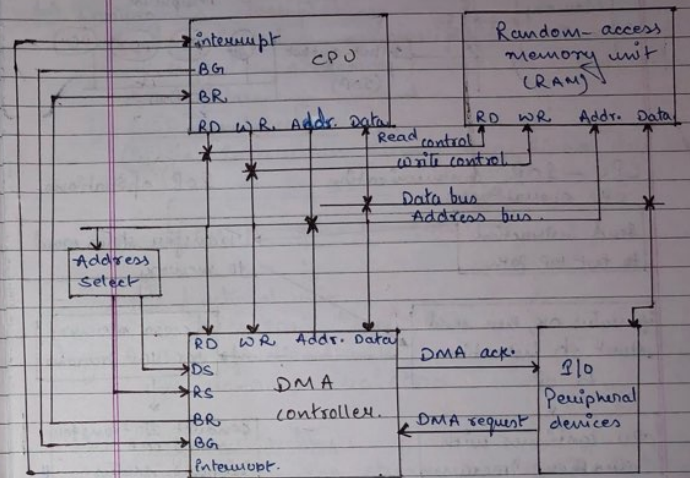 interrupt
CPU
BG
BR
RD WR. Addr. Data
Random-access
memory unit
(RAM)
RD WR Addr. Data
Read control
Write control
Data bus
Address bus.
Address
Select
RD WR Addr. Data
DS
RS
BR
BG
interrupt.
DMA
controller.
DMA ack.
DMA request
I/O
Peripheral
devices